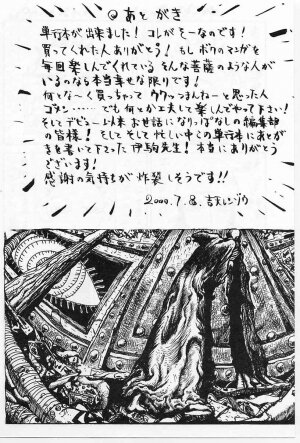 ◎あとがき
単行本が出来ました！コレがそーなのです！
買ってくれた人ありがとう！もしボクのマンガを
毎回楽しんでくれている そんな菩薩のような人が
いるのなら本当幸せな限りです！
何とな〜く買っちゃってウワッつまんねーと思った人
ゴメン……でも何とか工夫して楽しんでやって下さい！
そしてデビュー以来お世話になりっぱなしの編集部
の皆様！そしてそして忙しい中この単行本にあとが
きを書いて下さった伊駒先生！本当にありがとう
ございます！
感謝の気持ちが炸裂しそうです!!
2000.7.8.